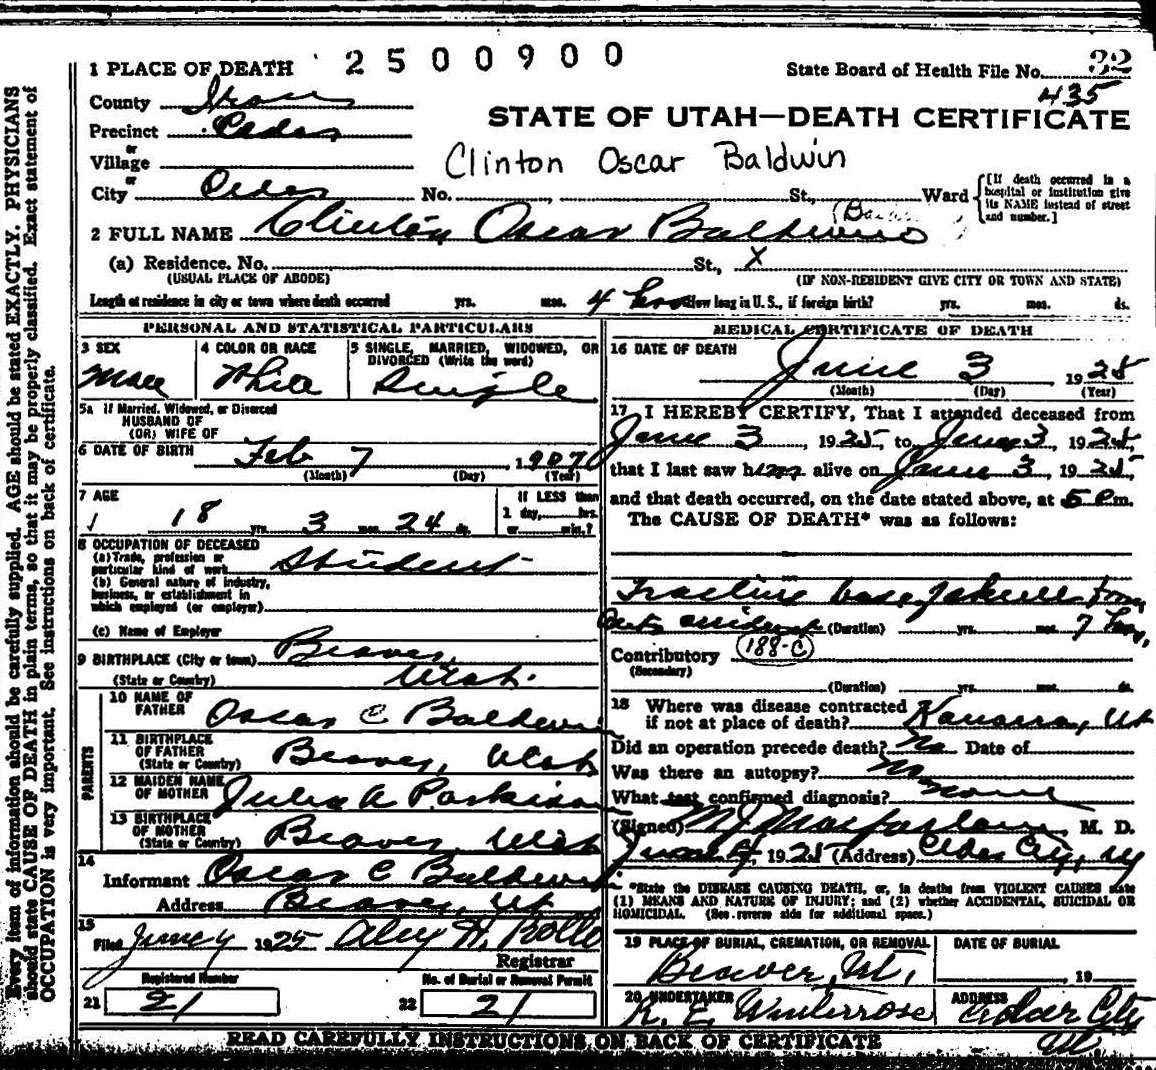 2500900
32
1 PLACE OF DEATH
State Board of Health File No.
435
County Iron
STATE OF UTAH—DEATH CERTIFICATE
Precinct Cedar
or
Village
Clinton Oscar Baldwin
or
City Cedar No. St., Ward
[If death occurred in a hospital or institution give its NAME instead of street and number.]
2 FULL NAME Clinton Oscar Baldwin
(a) Residence. No. St., X
(USUAL PLACE OF ABODE) (IF NON-RESIDENT GIVE CITY OR TOWN AND STATE)
Length of residence in city or town where death occurred yrs. mos. 4 hrs How long in U. S., if foreign birth? yrs. mos. ds.
PERSONAL AND STATISTICAL PARTICULARS
3 SEX
Male
4 COLOR OR RACE
White
5 SINGLE, MARRIED, WIDOWED, OR DIVORCED (Write the word)
Single
5a If Married, Widowed, or Divorced
HUSBAND OF
(OR) WIFE OF
6 DATE OF BIRTH Feb 7 1907
(Month) (Day) (Year)
7 AGE
18 yrs. 3 mos. 24 ds.
If LESS than
1 day, hrs.
or min.?
8 OCCUPATION OF DECEASED
(a) Trade, profession or
particular kind of work Student
(b) General nature of industry,
business, or establishment in
which employed (or employer)
(c) Name of Employer
9 BIRTHPLACE (City or town) Beaver,
(State or Country) Utah.
PARENTS
10 NAME OF
FATHER Oscar C Baldwin
11 BIRTHPLACE
OF FATHER
(State or Country) Beaver, Utah
12 MAIDEN NAME
OF MOTHER Julia A Parkinson
13 BIRTHPLACE
OF MOTHER
(State or Country) Beaver, Utah
14
Informant Oscar C Baldwin
Address Beaver, Ut
15
Filed June 1925
Registrar
Registered Number
21 21
No. of Burial or Removal Permit
22 21
MEDICAL CERTIFICATE OF DEATH
16 DATE OF DEATH
June 3 1925
(Month) (Day) (Year)
17 I HEREBY CERTIFY, That I attended deceased from
June 3, 1925, to June 3, 1925,
that I last saw him alive on June 3, 1925,
and that death occurred, on the date stated above, at 5 P.m.
The CAUSE OF DEATH* was as follows:
Fracture base of skull from
Auto accident (Duration) yrs. mos. 7 hrs,
188-C
Contributory
(Secondary)
(Duration) yrs. mos. ds.
18 Where was disease contracted
if not at place of death? Kanarra, Ut
Did an operation precede death? No Date of
Was there an autopsy? No
What test confirmed diagnosis? None
(Signed) M J Macfarlane, M. D.
June 4, 1925 (Address) Cedar City, Ut
*State the DISEASE CAUSING DEATH, or, in deaths from VIOLENT CAUSES state
(1) MEANS AND NATURE OF INJURY; and (2) whether ACCIDENTAL, SUICIDAL OR
HOMICIDAL. (See reverse side for additional space.)
19 PLACE OF BURIAL, CREMATION, OR REMOVAL
Beaver, Ut,
DATE OF BURIAL
, 19
20 UNDERTAKER
R. E. Winterrose
ADDRESS
Cedar City
Ut.
READ CAREFULLY INSTRUCTIONS ON BACK OF CERTIFICATE
Every item of information should be carefully supplied. AGE should be stated EXACTLY. PHYSICIANS
should state CAUSE OF DEATH in plain terms, so that it may be properly classified. Exact statement of
OCCUPATION is very important. See instructions on back of certificate.